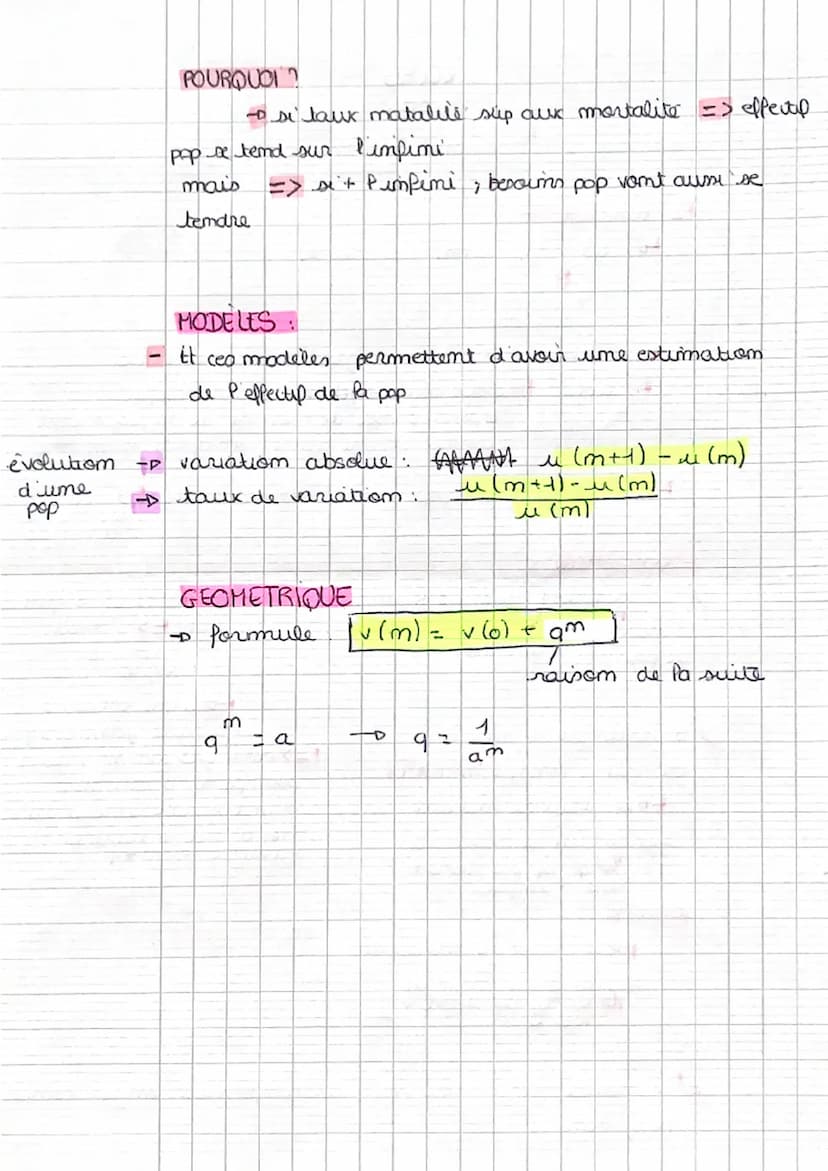 POURQUOI ?
→ si taux natalité sup aux mortalité => effectif
pop se tend sur l'infini
mais => si + l'infini, besoins pop vont aussi se
tendre
MODÈLES :
- tt ces modèles permettent d'avoir une estimation
de l'effectif de la pop
évolution → variation absolue : u(n+1) - u(n)
d'une
pop → taux de variation : u(n+1)-u(n) / u(n)
GEOMETRIQUE
→ formule : v(n) = v(0) + q^n
raison de la suite
q^n = a → q = 1/a^n